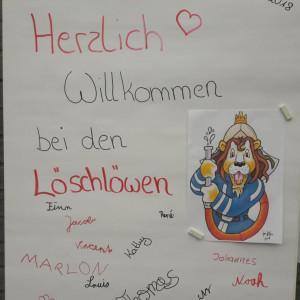 2018
Herzlich ♡
Willkommen
bei den
Löschlöwen
Finn
Jacob
René
Vincent
Kathy
Johannes
MARLON
Louis
Thomas
Noah